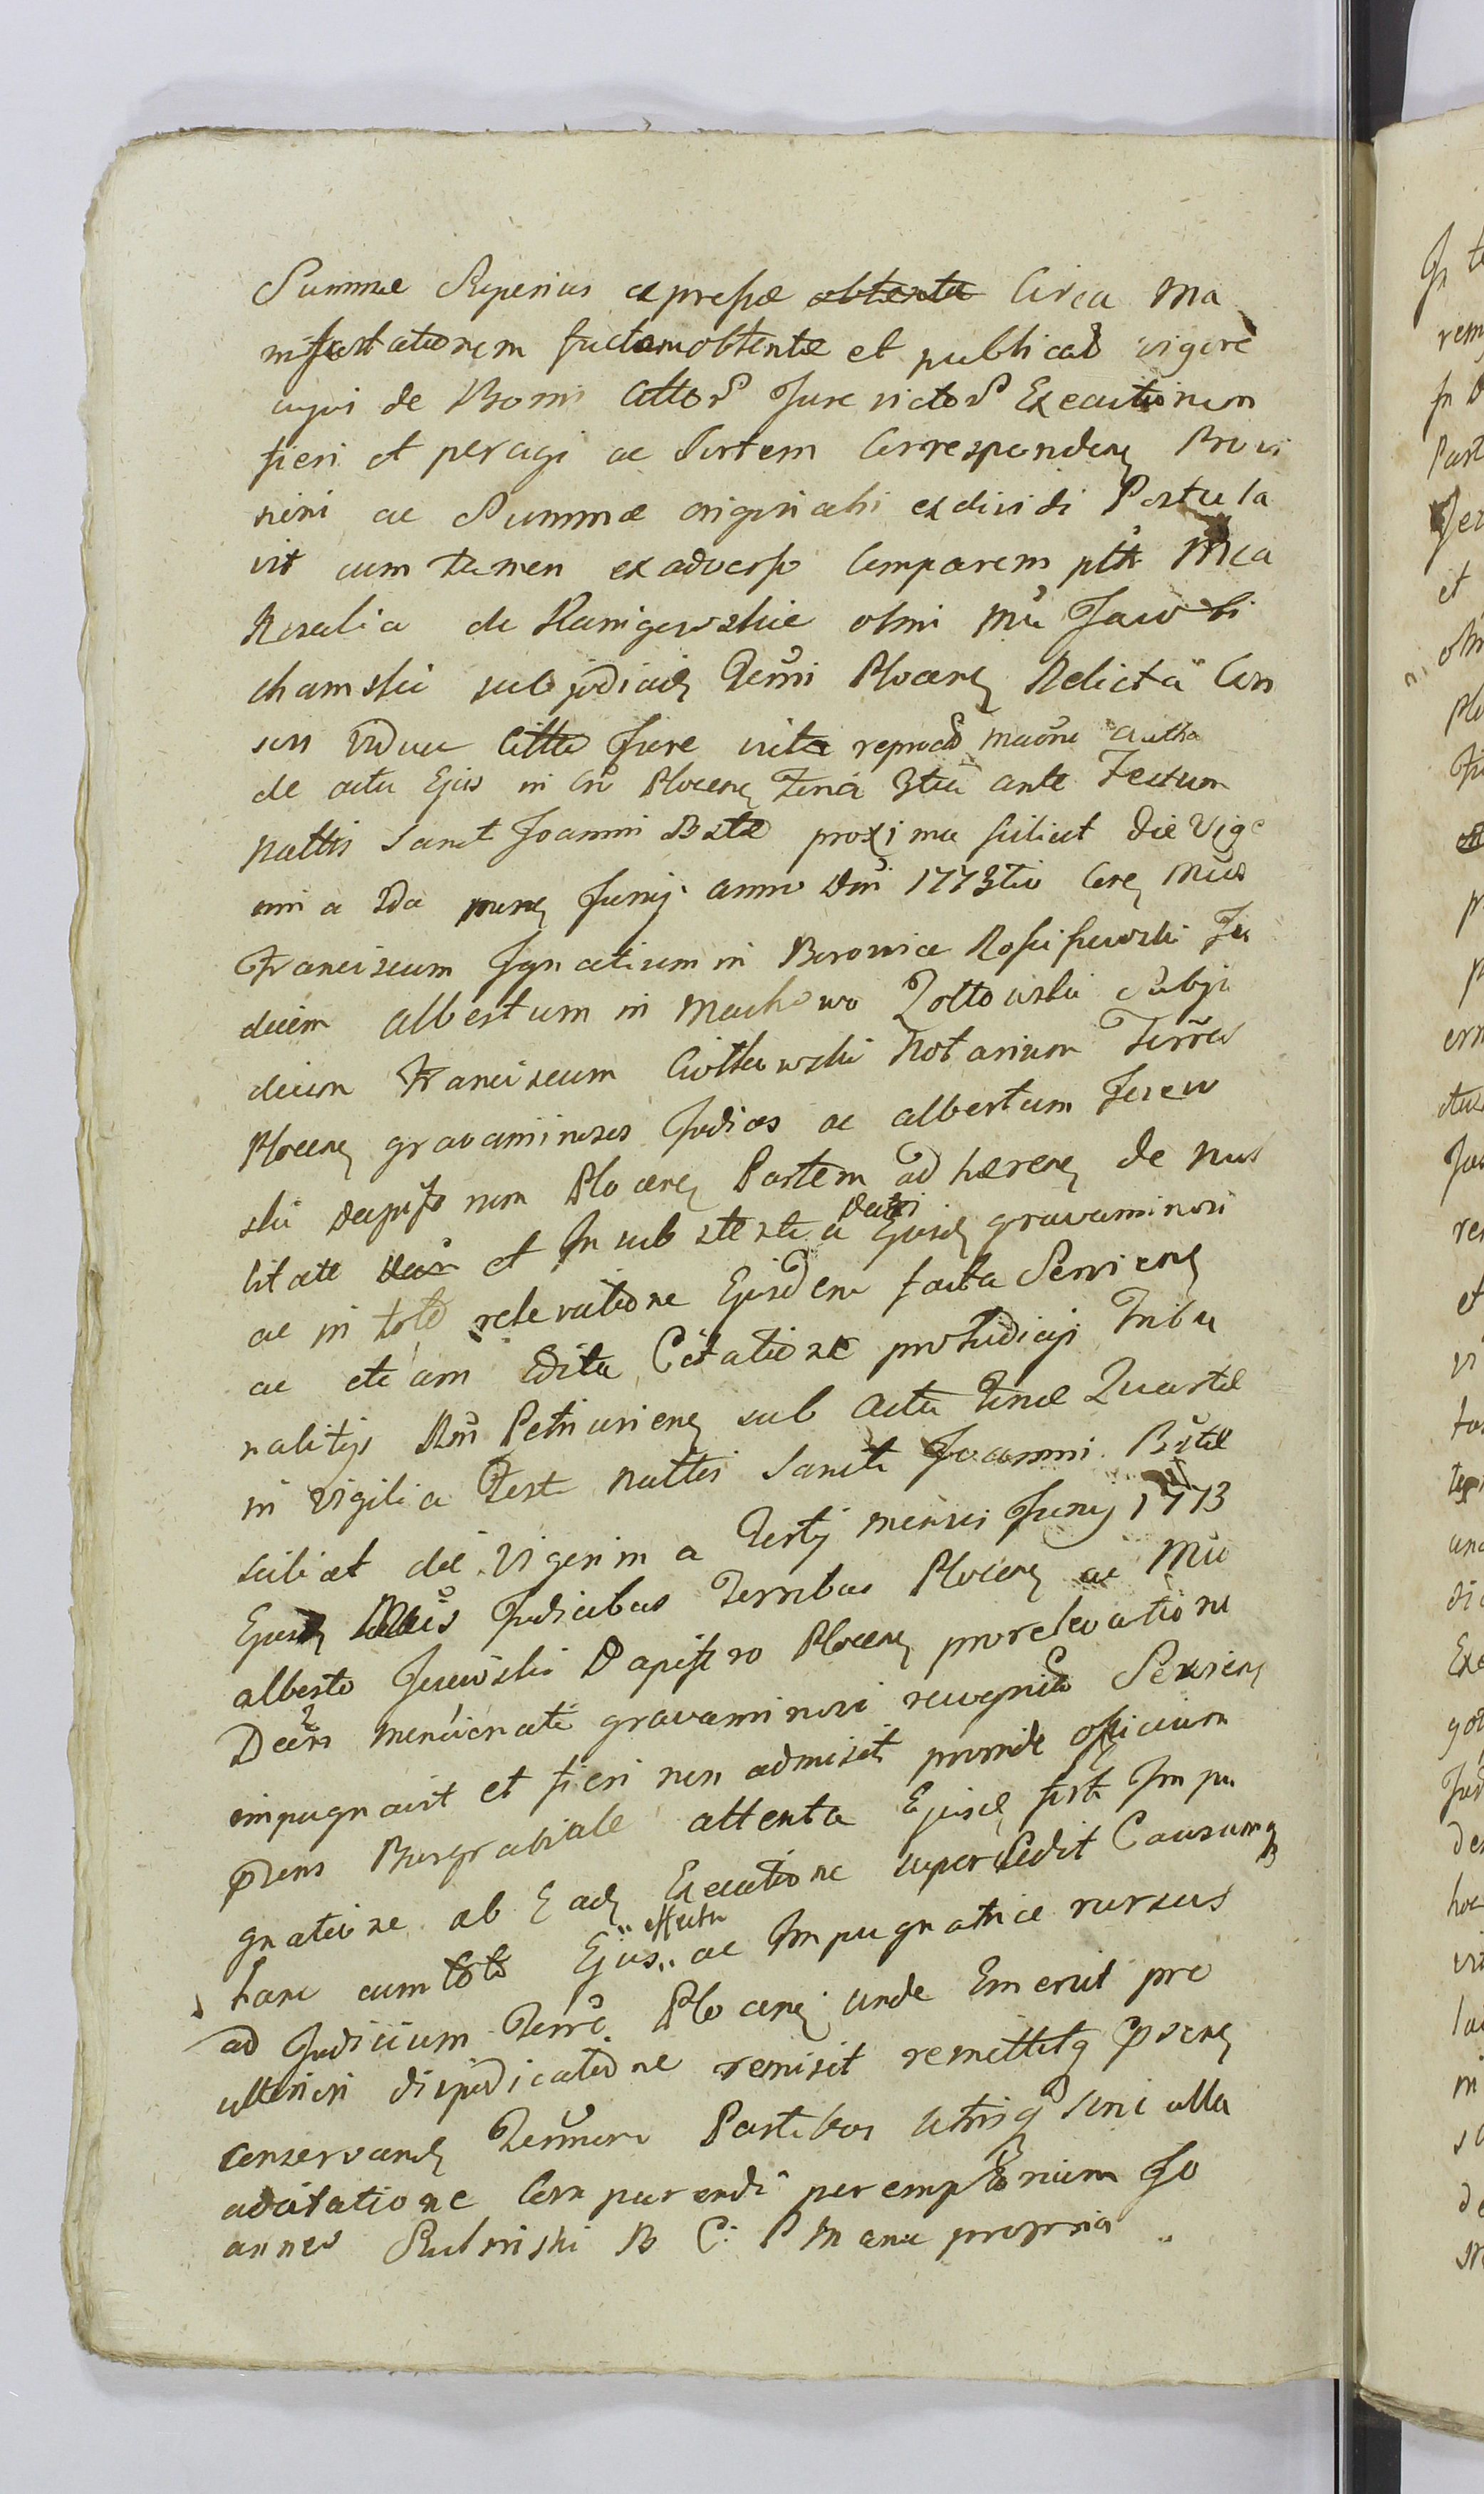 Summæ Superius expressæ obtenta Circa Ma
nifestationem factam obtentæ et publicat vigore
cujus de Bonis Citto Jure victo Executionem
fieri et peragi ac Sortem Correspondenę Provi
sioni ac Summæ originali exdividi Postula
vit cum tamen ex adverso Comparem ptr Mca
Rosalia de Karnigowskie olim Mci Jacobi
chamski subjudicis Terrni Plocenę Relicta Con
sors vidua Citto Jure victa reproced maone autha
de actu Ejus in Cri Plocenę Feria 3tia ante Festum
Nattis Sancti Joanni Btæ proxima scilicet die Vige
sima 2da mensę Junij anno Dni 1773tio Cerę Mcos
Franciscum Ignatium in Borowice Rosciszewski Ju
dicem albertum in Machowo Zottowski Subju
dicem Franciscum Ciottkowski Notarium Terres
Plocenę gravaminosos Judices ac albertum Jerew
ski Dapiferum Plocenę Partem adhærenę de nul
litate Decr et In subsistentia Decreti Ejusdę gravaminosi
ac in toto relevatione Ejusdem facta Servienę
ac etiam Edita Citatione pro Judicijs Tribu
nalitijs Rni Petricovienę sub Actu Feriæ Quartæ
in vigilia Festi Nattis Sancti Joanni Btæ
scilicet die vigesima Tertij mensis Junij 1773
Ejusdę Mcis Judicibus Terribus Plocenę ac Mco
alberto Jerewski Dapifero Plocenę pro relevatione
Decri mencionati gravaminosi recognita Servienę
impugnavit et fieri non admisit proinde officium
præns Burgrabiale attenta Ejusdę Impu
gnatione ab Eadę Executione supersedit Causamqȝ
hanc cum toto Ejus effectu ac Impugnatrice rursus
ad Judicium Terre Plocenę unde Emersit pro
ulteriori disjudicatione remisit remittitqȝ præsenę
conservandę Terminum Partibus utrisqȝ sine ulla
adcitatione Comparendi peremptorium Jo
annes Rubinski B C: P Manu propria